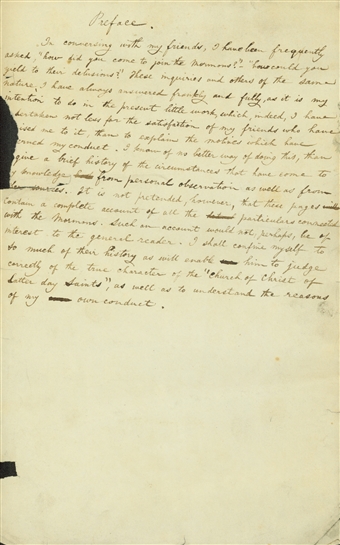 Preface.
In conversing with my friends, I have been frequently
asked, "how did you come to join the Mormons?" "how could you
yield to their delusions?" These inquiries and others of the same
nature, I have always answered frankly and fully, as it is my
intention to do in the present little work, which, indeed, I have
undertaken not less for the satisfaction of my friends who have
ised me to it, than to explain the motives which have
erned my conduct. I know of no better way of doing this, than
give a brief history of the circumstances that have come to
my knowledge from personal observation as well as from
sources. It is not pretended, however, that these pages
contain a complete account of all the particulars connected
with the Mormons. Such an account would not, perhaps, be of
interest to the general reader. I shall confine myself to
so much of their history as will enable him to judge
correctly of the true character of the "Church of Christ of
Latter day Saints", as well as to understand the reasons
of my own conduct.